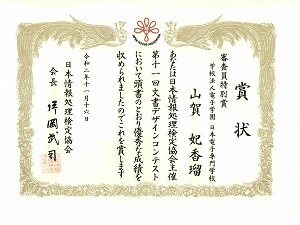 賞状
審査員特別賞
学校法人電子学園 日本電子専門学校
山賀 妃香瑠
あなたは日本情報処理検定協会主催
第十一回文書デザインコンテスト
において頭書のとおり優秀な成績を
収められましたのでこれを賞します
令和二年十一月十六日
日本情報処理検定協会
会長